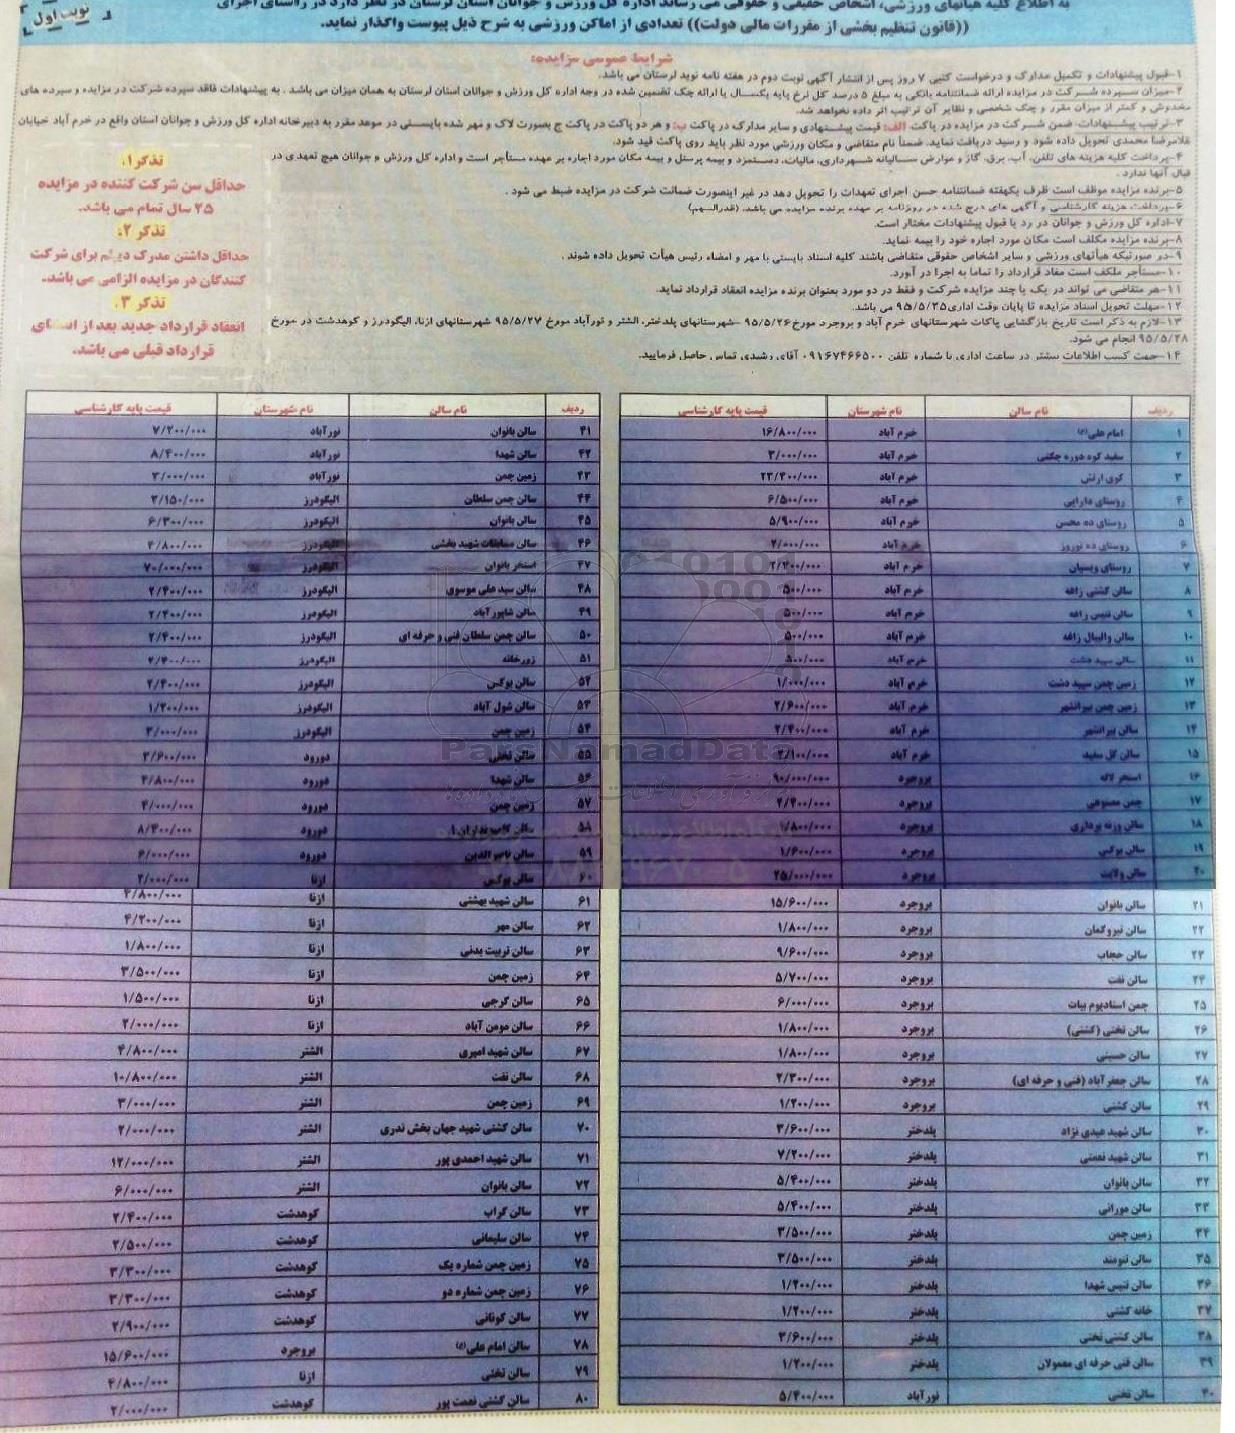 به اطلاع کلیه هیأتهای ورزشی، اشخاص حقیقی و حقوقی می رساند اداره کل ورزش و جوانان استان لرستان در نظر دارد در راستای اجرای
((قانون تنظیم بخشی از مقررات مالی دولت)) تعدادی از اماکن ورزشی به شرح ذیل پیوست واگذار نماید.
نوبت اول
شرایط عمومی مزایده:
۱-قبول پیشنهادات و تکمیل مدارک و درخواست کتبی ۷ روز پس از انتشار آگهی نوبت دوم در هفته نامه نوید لرستان می باشد.
۲-میزان سپرده شرکت در مزایده ارائه ضمانتنامه بانکی به مبلغ ۵ درصد کل نرخ پایه یکسال یا ارائه چک تضمین شده در وجه اداره کل ورزش و جوانان استان لرستان به همان میزان می باشد . به پیشنهادات فاقد سپرده شرکت در مزایده و سپرده های
مخدوش و کمتر از میزان مقرر و چک شخصی و نظایر آن ترتیب اثر داده نخواهد شد.
۳-ترتیب پیشنهادات: ضمن شرکت در مزایده در پاکت الف: قیمت پیشنهادی و سایر مدارک در پاکت ب: و هر دو پاکت در پاکت ج بصورت لاک و مهر شده بایستی در موعد مقرر به دبیرخانه اداره کل ورزش و جوانان استان واقع در خرم آباد خیابان
غلامرضا محمدی تحویل داده شود و رسید دریافت نماید. ضمناً نام متقاضی و مکان ورزشی مورد نظر باید روی پاکت قید شود.
۴-پرداخت کلیه هزینه های تلفن، آب، برق، گاز و عوارض سالیانه شهرداری، مالیات، دستمزد و بیمه پرسنل و بیمه مکان مورد اجاره بر عهده مستأجر است و اداره کل ورزش و جوانان هیچ تعهدی در
قبال آنها ندارد .
۵-برنده مزایده موظف است ظرف یکهفته ضمانتنامه حسن اجرای تعهدات را تحویل دهد در غیر اینصورت ضمانت شرکت در مزایده ضبط می شود .
۶-پرداخت هزینه کارشناسی و آگهی های درج شده در روزنامه بر عهده برنده مزایده می باشد. (قدرالسهم)
۷-اداره کل ورزش و جوانان در رد یا قبول پیشنهادات مختار است.
۸-برنده مزایده مکلف است مکان مورد اجاره خود را بیمه نماید.
۹-در صورتیکه هیأتهای ورزشی و سایر اشخاص حقوقی متقاضی باشند کلیه اسناد بایستی با مهر و امضاء رئیس هیأت تحویل داده شوند .
۱۰-مستأجر ملکف است مفاد قرارداد را تماما به اجرا در آورد.
۱۱-هر متقاضی می تواند در یک یا چند مزایده شرکت و فقط در دو مورد بعنوان برنده مزایده انعقاد قرارداد نماید.
۱۲-مهلت تحویل اسناد مزایده تا پایان وقت اداری۹۵/۵/۲۵ می باشد.
۱۳-لازم به ذکر است تاریخ بازگشایی پاکات شهرستانهای خرم آباد و بروجرد مورخ۹۵/۵/۲۶ -شهرستانهای پلدختر، الشتر و نورآباد مورخ ۹۵/۵/۲۷ شهرستانهای ازنا، الیگودرز و کوهدشت در مورخ
۹۵/۵/۲۸ انجام می شود.
۱۴-جهت کسب اطلاعات بیشتر در ساعت اداری با شماره تلفن ۰۹۱۶۷۴۶۶۵۰۰ آقای رشیدی تماس حاصل فرمایید.
تذکر۱.
حداقل سن شرکت کننده در مزایده
۲۵ سال تمام می باشد.
تذکر ۲.
حداقل داشتن مدرک دیپلم برای شرکت
کنندگان در مزایده الزامی می باشد.
تذکر ۳.
انعقاد قرارداد جدید بعد از انقضای
قرارداد قبلی می باشد.
ردیف نام سالن نام شهرستان قیمت پایه کارشناسی
۱ امام علی(ع) خرم آباد ۱۶/۸۰۰/۰۰۰
۲ سفید کوه دوره چگنی خرم آباد ۳/۰۰۰/۰۰۰
۳ کوی ارتش خرم آباد ۲۳/۴۰۰/۰۰۰
۴ روستای دارایی خرم آباد ۶/۵۰۰/۰۰۰
۵ روستای ده محسن خرم آباد ۵/۹۰۰/۰۰۰
۶ روستای ده نوروز خرم آباد ۲/۰۰۰/۰۰۰
۷ روستای ویسیان خرم آباد ۲/۴۰۰/۰۰۰
۸ سالن کشتی زاغه خرم آباد ۵۰۰/۰۰۰
۹ سالن تنیس زاغه خرم آباد ۵۰۰/۰۰۰
۱۰ سالن والیبال زاغه خرم آباد ۵۰۰/۰۰۰
۱۱ سالن سپید دشت خرم آباد ۵۰۰/۰۰۰
۱۲ زمین چمن سپید دشت خرم آباد ۱/۰۰۰/۰۰۰
۱۳ زمین چمن بیرانشهر خرم آباد ۲/۶۰۰/۰۰۰
۱۴ سالن بیرانشهر خرم آباد ۲/۴۰۰/۰۰۰
۱۵ سالن گل سفید خرم آباد ۲/۱۰۰/۰۰۰
۱۶ استخر لاله بروجرد ۹۰/۰۰۰/۰۰۰
۱۷ چمن مصنوعی بروجرد ۲/۴۰۰/۰۰۰
۱۸ سالن وزنه برداری بروجرد ۱/۸۰۰/۰۰۰
۱۹ سالن بوکس بروجرد ۱/۶۰۰/۰۰۰
۲۰ سالن ولایت بروجرد ۲۵/۰۰۰/۰۰۰
۲۱ سالن بانوان بروجرد ۱۵/۶۰۰/۰۰۰
۲۲ سالن تیروکمان بروجرد ۱/۸۰۰/۰۰۰
۲۳ سالن حجاب بروجرد ۹/۶۰۰/۰۰۰
۲۴ سالن نفت بروجرد ۵/۷۰۰/۰۰۰
۲۵ چمن استادیوم بیات بروجرد ۶/۰۰۰/۰۰۰
۲۶ سالن تختی (کشتی) بروجرد ۱/۸۰۰/۰۰۰
۲۷ سالن حسینی بروجرد ۱/۸۰۰/۰۰۰
۲۸ سالن جعفرآباد (فنی و حرفه ای) بروجرد ۲/۳۰۰/۰۰۰
۲۹ سالن کشتی بروجرد ۱/۲۰۰/۰۰۰
۳۰ سالن شهید عیدی نژاد پلدختر ۳/۶۰۰/۰۰۰
۳۱ سالن شهید نعمتی پلدختر ۷/۲۰۰/۰۰۰
۳۲ سالن بانوان پلدختر ۵/۴۰۰/۰۰۰
۳۳ سالن مورانی پلدختر ۵/۴۰۰/۰۰۰
۳۴ زمین چمن پلدختر ۳/۵۰۰/۰۰۰
۳۵ سالن تنومند پلدختر ۳/۵۰۰/۰۰۰
۳۶ سالن تنیس شهدا پلدختر ۱/۲۰۰/۰۰۰
۳۷ خانه کشتی پلدختر ۱/۲۰۰/۰۰۰
۳۸ سالن کشتی تختی پلدختر ۳/۶۰۰/۰۰۰
۳۹ سالن فنی حرفه ای معمولان پلدختر ۱/۲۰۰/۰۰۰
۴۰ سالن تختی نورآباد ۵/۴۰۰/۰۰۰
ردیف نام سالن نام شهرستان قیمت پایه کارشناسی
۴۱ سالن بانوان نورآباد ۷/۲۰۰/۰۰۰
۴۲ سالن شهدا نورآباد ۸/۴۰۰/۰۰۰
۴۳ زمین چمن نورآباد ۳/۰۰۰/۰۰۰
۴۴ سالن چمن سلطان الیگودرز ۳/۱۵۰/۰۰۰
۴۵ سالن بانوان الیگودرز ۶/۳۰۰/۰۰۰
۴۶ سالن مسابقات شهید بخشی الیگودرز ۴/۸۰۰/۰۰۰
۴۷ استخر بانوان الیگودرز ۷۰/۰۰۰/۰۰۰
۴۸ سالن سید علی موسوی الیگودرز ۲/۴۰۰/۰۰۰
۴۹ سالن شاپورآباد الیگودرز ۲/۴۰۰/۰۰۰
۵۰ سالن چمن سلطان فنی و حرفه ای الیگودرز ۲/۴۰۰/۰۰۰
۵۱ زورخانه الیگودرز ۲/۴۰۰/۰۰۰
۵۲ سالن بوکس الیگودرز ۲/۴۰۰/۰۰۰
۵۳ سالن شول آباد الیگودرز ۱/۲۰۰/۰۰۰
۵۴ زمین چمن الیگودرز ۳/۰۰۰/۰۰۰
۵۵ سالن تختی دورود ۳/۶۰۰/۰۰۰
۵۶ سالن شهدا دورود ۴/۸۰۰/۰۰۰
۵۷ زمین چمن دورود ۴/۰۰۰/۰۰۰
۵۸ سالن دورود ۸/۴۰۰/۰۰۰
۵۹ سالن ناصرالدین دورود ۶/۰۰۰/۰۰۰
۶۰ سالن بوکس ازنا ۲/۰۰۰/۰۰۰
۶۱ سالن شهید بهشتی ازنا ۴/۸۰۰/۰۰۰
۶۲ سالن مهر ازنا ۴/۲۰۰/۰۰۰
۶۳ سالن تربیت بدنی ازنا ۱/۸۰۰/۰۰۰
۶۴ زمین چمن ازنا ۳/۵۰۰/۰۰۰
۶۵ سالن گرجی ازنا ۱/۵۰۰/۰۰۰
۶۶ سالن مومن آباد ازنا ۲/۰۰۰/۰۰۰
۶۷ سالن شهید امیری الشتر ۴/۸۰۰/۰۰۰
۶۸ سالن نفت الشتر ۱۰/۸۰۰/۰۰۰
۶۹ زمین چمن الشتر ۳/۰۰۰/۰۰۰
۷۰ سالن کشتی شهید جهان بخش ندری الشتر ۲/۰۰۰/۰۰۰
۷۱ سالن شهید احمدی پور الشتر ۱۲/۰۰۰/۰۰۰
۷۲ سالن بانوان الشتر ۶/۰۰۰/۰۰۰
۷۳ سالن گراب کوهدشت ۲/۴۰۰/۰۰۰
۷۴ سالن سلیمانی کوهدشت ۲/۵۰۰/۰۰۰
۷۵ زمین چمن شماره یک کوهدشت ۳/۳۰۰/۰۰۰
۷۶ زمین چمن شماره دو کوهدشت ۳/۳۰۰/۰۰۰
۷۷ سالن کونانی کوهدشت ۲/۹۰۰/۰۰۰
۷۸ سالن امام علی(ع) بروجرد ۱۵/۶۰۰/۰۰۰
۷۹ سالن تختی ازنا ۴/۸۰۰/۰۰۰
۸۰ سالن کشتی نعمت پور کوهدشت ۲/۰۰۰/۰۰۰
ParsNamadData